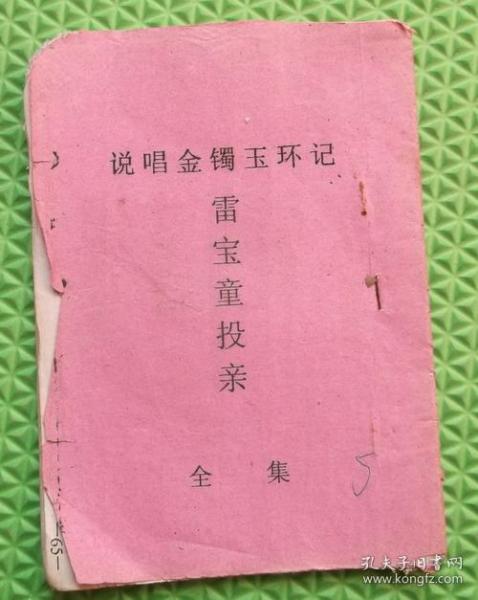 说唱金镯玉环记
雷宝童投亲
全集
5
65—
孔夫子旧书网
www.kongfz.com